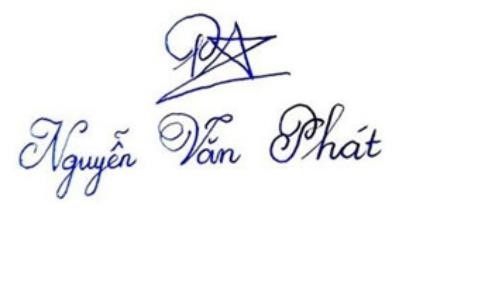 Nguyễn Văn Phát